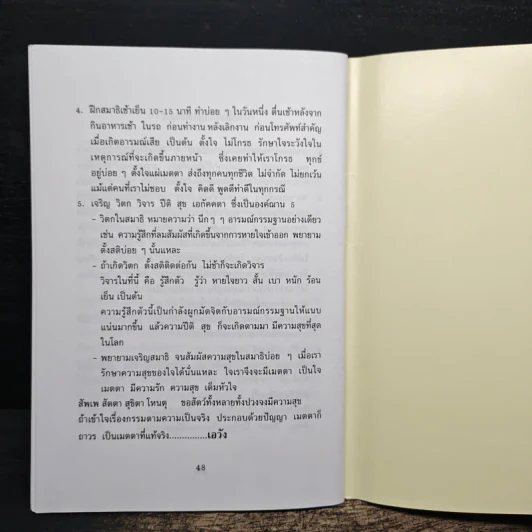 4. ฝึกสมาธิเช้าเย็น 10-15 นาที ทำบ่อย ๆ ในวันหนึ่ง ตื่นเช้าหลังจาก
กินอาหารเช้า ในรถ ก่อนทำงาน หลังเลิกงาน ก่อนโทรศัพท์สำคัญ
เมื่อเกิดอารมณ์เสีย เป็นต้น ตั้งใจ ไม่โกรธ รักษาใจระวังใจใน
เหตุการณ์ที่จะเกิดขึ้นภายหน้า ซึ่งเคยทำให้เราโกรธ ทุกข์
อยู่บ่อย ๆ ตั้งใจแผ่เมตตา ส่งถึงทุกคนทุกชีวิต ไม่จำกัด ไม่ยกเว้น
แม้แต่คนที่เราไม่ชอบ ตั้งใจ คิดดี พูดดีทำดีในทุกกรณี
5. เจริญ วิตก วิจาร ปีติ สุข เอกัคคตา ซึ่งเป็นองค์ฌาน 5
- วิตกในสมาธิ หมายความว่า นึกๆ ๆ อารมณ์กรรมฐานอย่างเดียว
เช่น ความรู้สึกที่ลมสัมผัสที่เกิดขึ้นจากการหายใจเข้าออก พยายาม
ตั้งสติบ่อย ๆ นั้นแหละ
- ถ้าเกิดวิตก ตั้งสติติดต่อกัน ไม่ช้าก็จะเกิดวิจาร
วิจารในที่นี้ คือ รู้สึกตัว รู้ว่า หายใจยาว สั้น เบา หนัก ร้อน
เย็น เป็นต้น
ความรู้สึกตัวนี้เป็นกำลังผูกมัดจิตกับอารมณ์กรรมฐานให้แนบ
แน่นมากขึ้น แล้วความปีติ สุข ก็จะเกิดตามมา มีความสุขที่สุด
ในโลก
- พยายามเจริญสมาธิ จนสัมผัสความสุขในสมาธิบ่อย ๆ เมื่อเรา
รักษาความสุขของใจได้นั่นแหละ ใจเราจึงจะมีเมตตา เป็นใจ
เมตตา มีความรัก ความสุข เต็มหัวใจ
สัพเพ สัตตา สุขิตา โหนตุ ขอสัตว์ทั้งหลายทั้งปวงจงมีความสุข
ถ้าเข้าใจเรื่องกรรมตามความเป็นจริง ประกอบด้วยปัญญา เมตตาก็
ถาวร เป็นเมตตาที่แท้จริง...............เอวัง
48